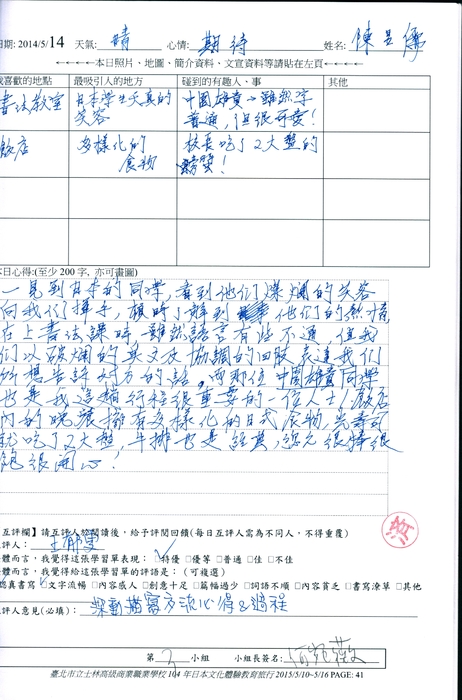 日期: 2014/5/14 天氣: 晴 心情: 期待 姓名: 陳
←←←←本日照片、地圖、簡介資料、文宣資料等請貼在左頁←←←←
我喜歡的地點 最吸引人的地方 碰到的有趣人、事 其他
書法教室 日本學生天真的笑容 中國雄貴→雖然字普通,但很可愛!
飯店 多樣化的食物 校長吃了2大盤的螃蟹!
本日心得:(至少 200 字, 亦可畫圖)
一見到日本的同學,看到他們燦爛的笑容
向我們揮手,頓時了解到他們的熱情
在上書法課時,雖然語言有些不通,但我
們以破爛的英文及協調的四肢表達我們
所想告訴對方的話,而那位中國雄貴同學
也是我這趟行程很重要的一位人士!飯店
內的晚餐擁有多樣化的日式食物,光壽司
就吃了2大盤,牛排也是經典,總之很棒很
飽很開心!
互評欄】請互評人於閱讀後,給予評閱回饋(每日互評人需為不同人,不得重覆)
評人: 王郁
體而言,我覺得這張學習單表現: □特優 □優等 □普通 □佳 □不佳
體而言,我覺得給這張學習單的評語是: (可複選)
認真書寫 □文字流暢 □內容感人 □創意十足 □篇幅過少 □詞語不順 □內容貧乏 □書寫潦草 □其他
評人意見(必填): 深動描寫交流心得&過程
第 3 小組 小組長簽名: 何宛薇
臺北市立士林高級商業職業學校 104 年日本文化體驗教育旅行 2015/5/10~5/16 PAGE: 41